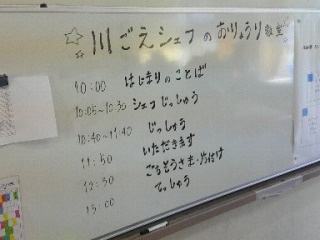 ☆川ごえシェフのおりょうり教室☆
10:00 はじまりのことば
10:05~10:30 シェフじっしゅう
10:40~11:40 じっしゅう
11:50 いただきます
12:30 ごちそうさま・片付け
13:00 てっしゅう